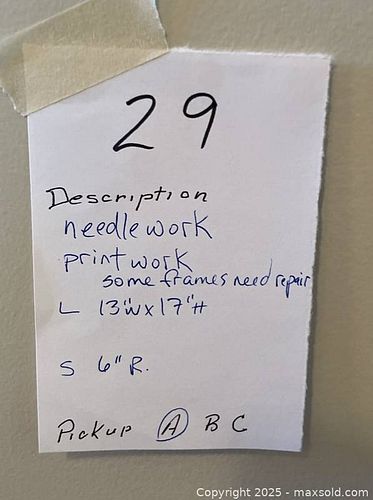 29
Description
needlework
print work
some frames need repair
L 13"w x 17"H
S 6" R.
Pickup A B C
Copyright 2025 - maxsold.com